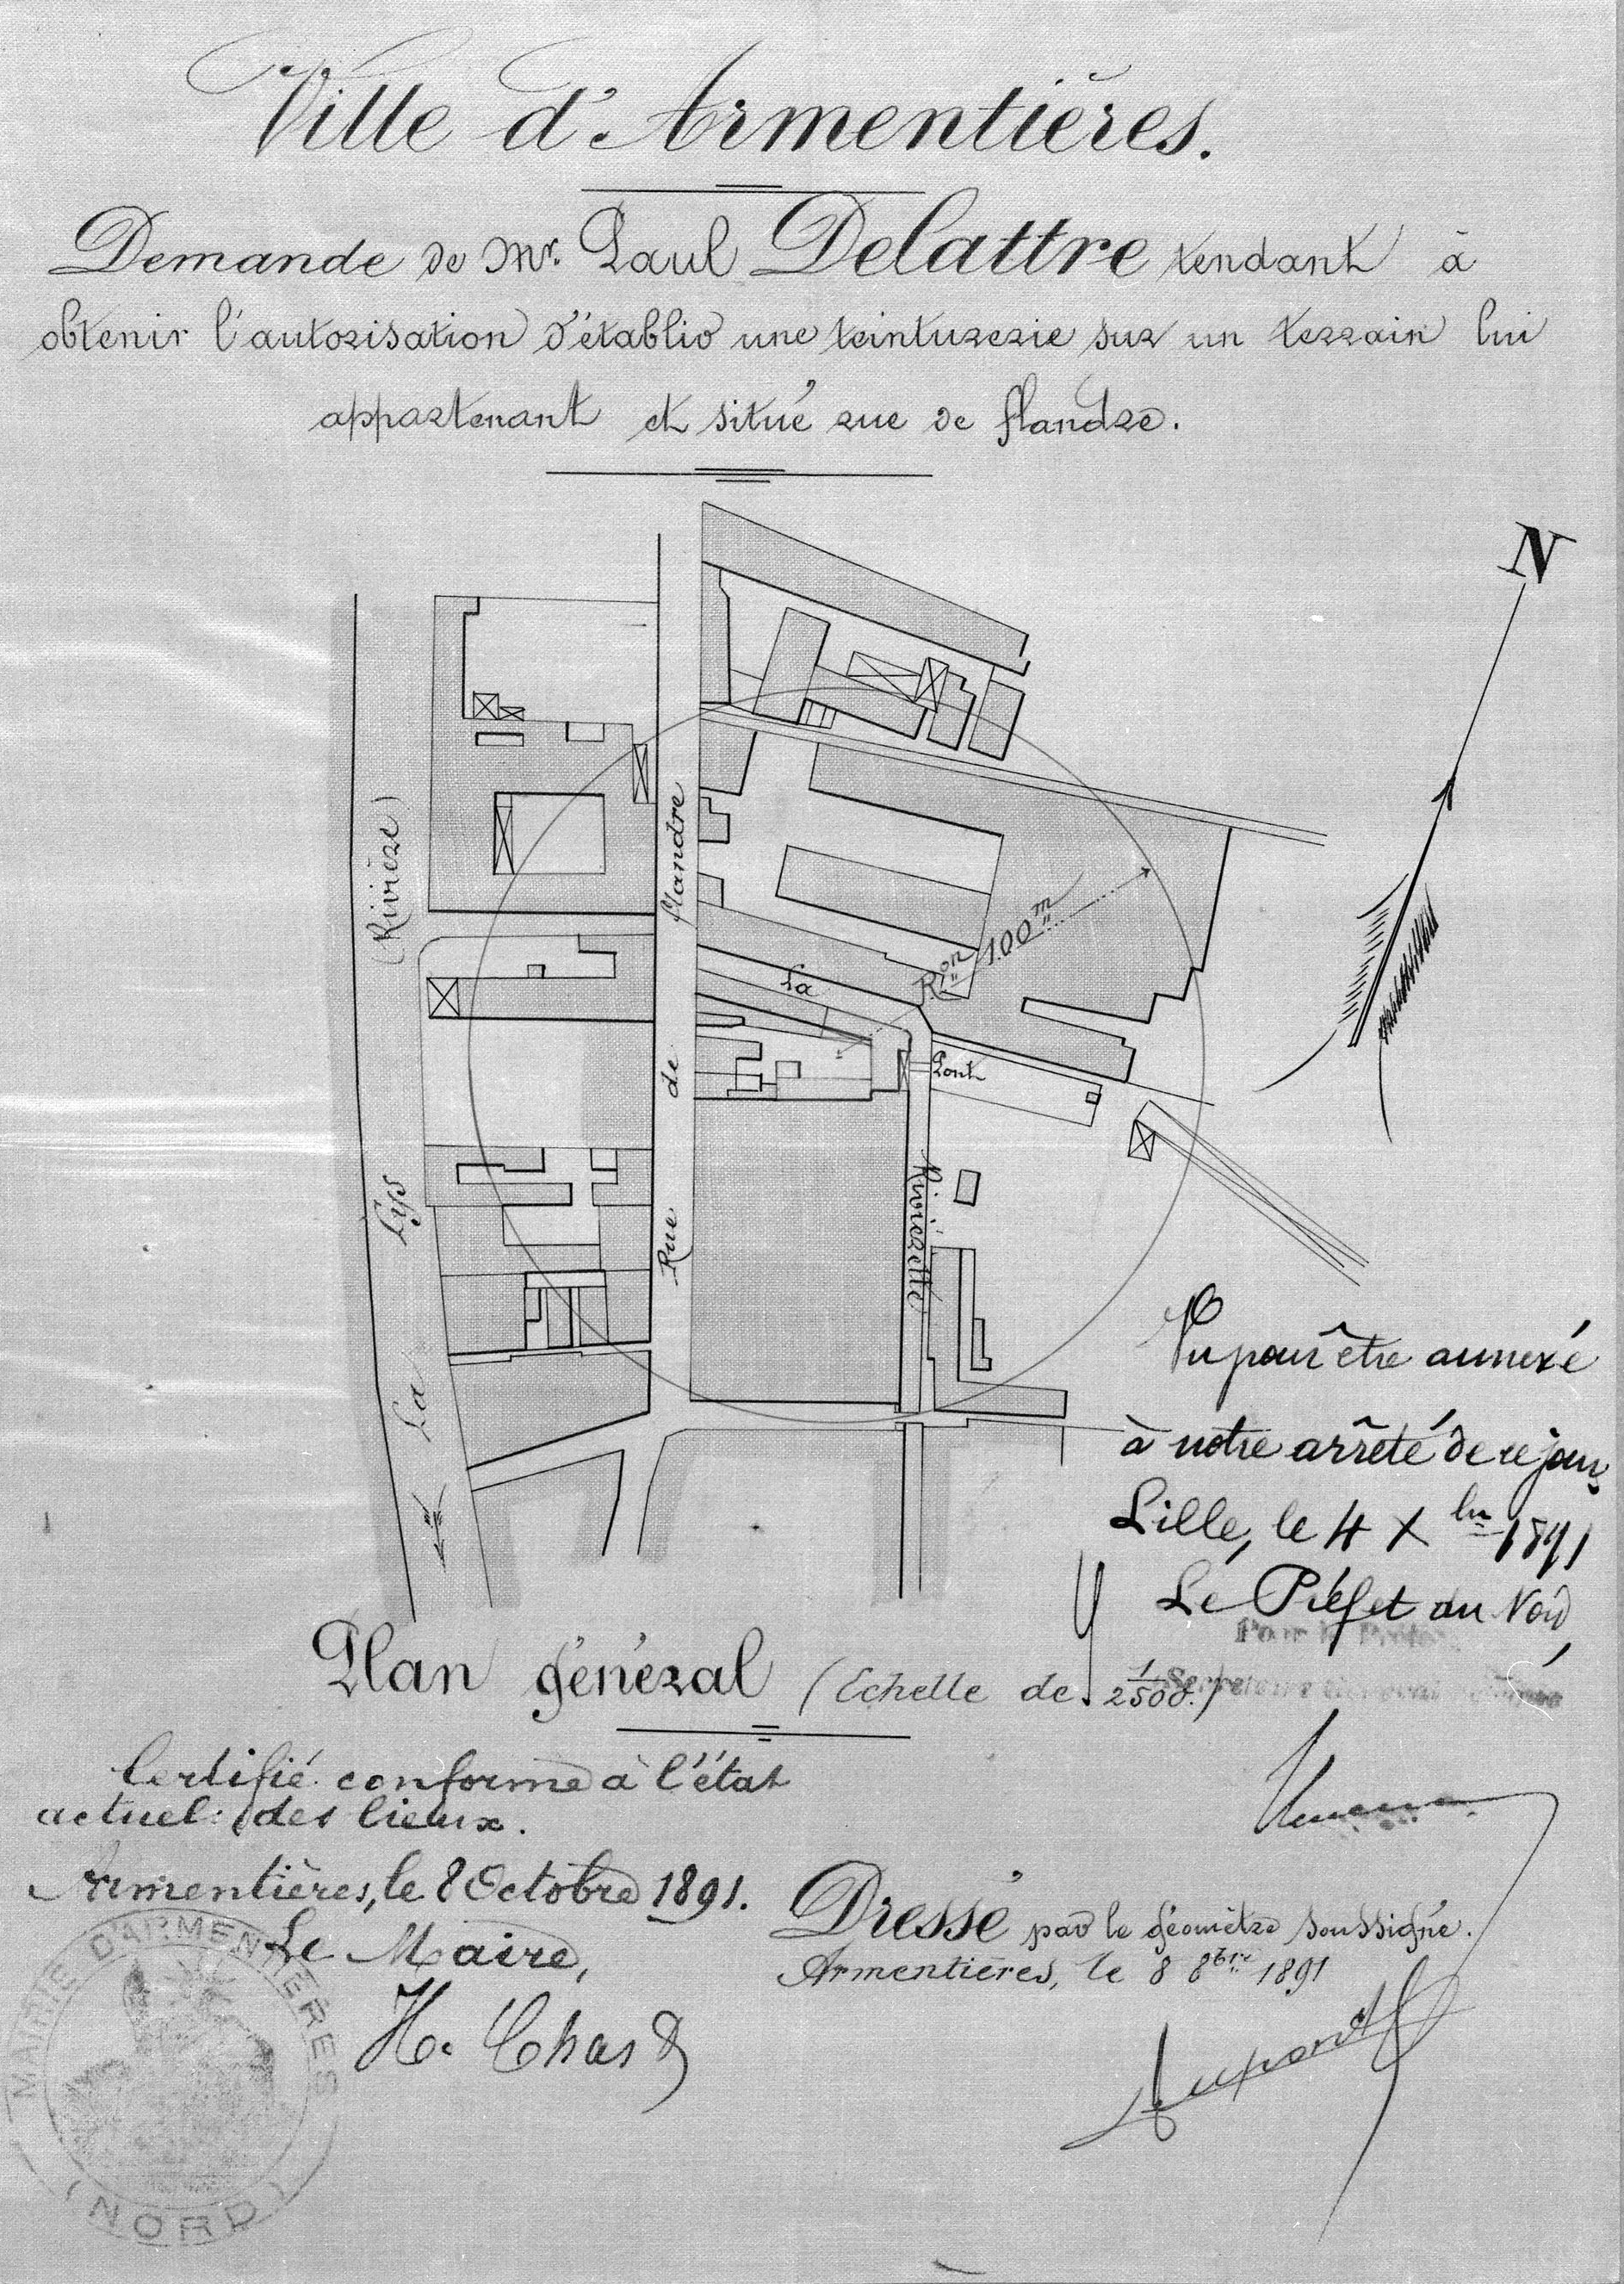 Ville d'Armentières.
Demande de Mr. Paul Delattre tendant à
obtenir l'autorisation d'établir une teinturerie sur un terrain lui
appartenant et situé rue de flandre.
N
(Rivière)
Lys
La
Rue de flandre
La
Rivierette
Pont
R.on 100m
Vu pour être annexé
à notre arrêté de ce jour
Lille, le 4 Xbre 1891
Le Préfet du Nord
Pour le Préfet
Secrétaire Général
Plan général (Echelle de 1/2500.)
Certifié conforme à l'état
actuel des lieux.
Armentières, le 8 Octobre 1891.
Le Maire,
H. Chas
MAIRIE D'ARMENTIÈRES
(NORD)
Dressé par le géomètre soussigné.
Armentières, le 8 8bre 1891
Dupont